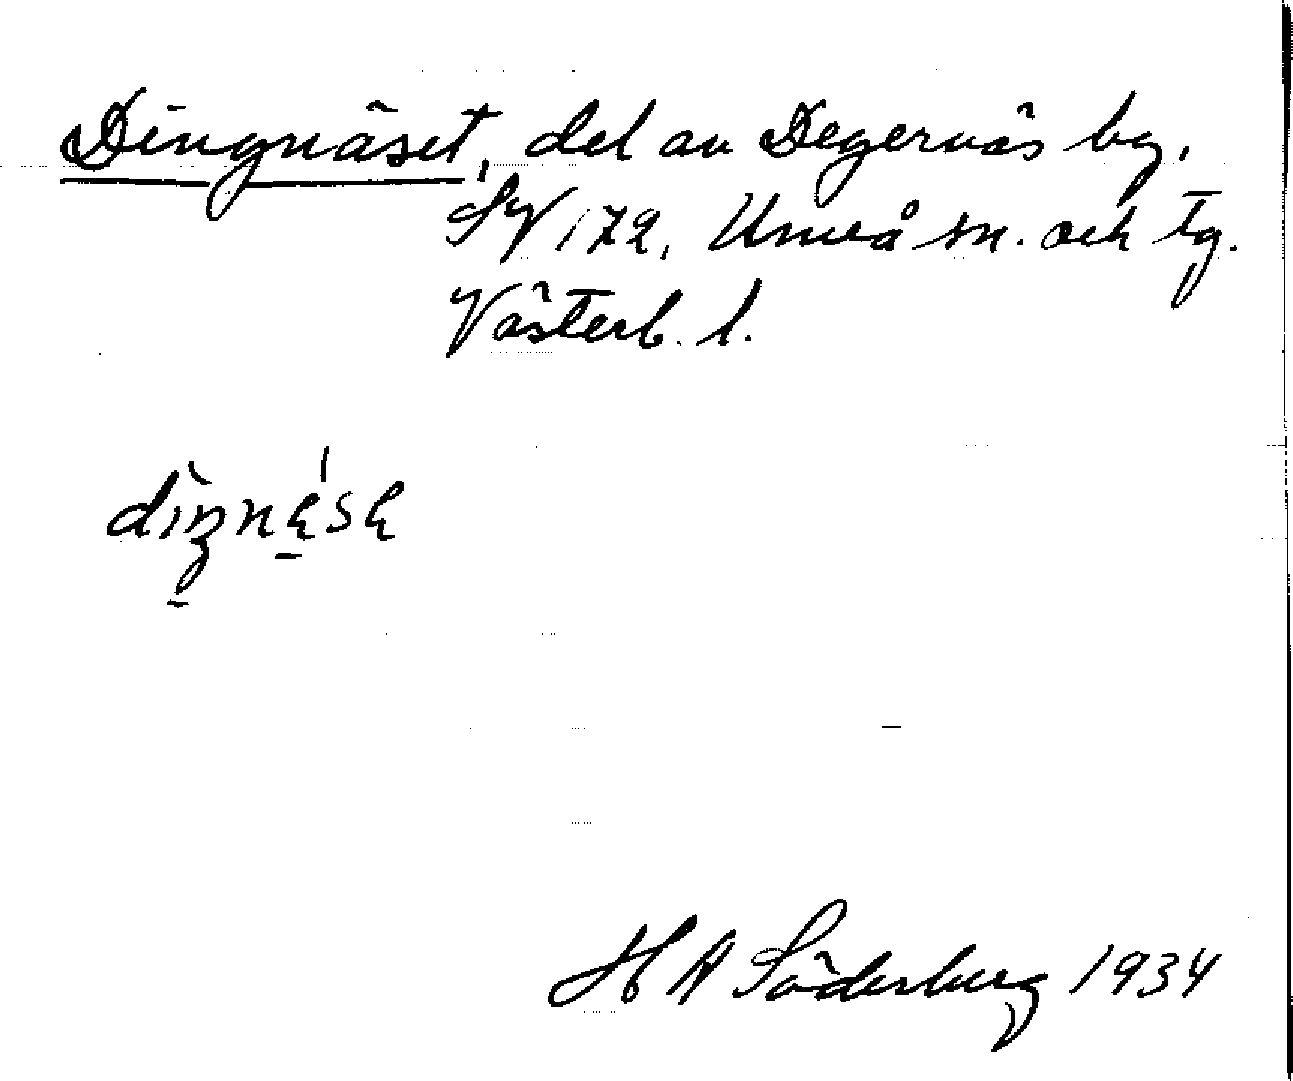 Dingnäset, del av Degernäs by,
SV 172, Umeå sn. och tg.
Västerb. l.
H A Söderberg 1934